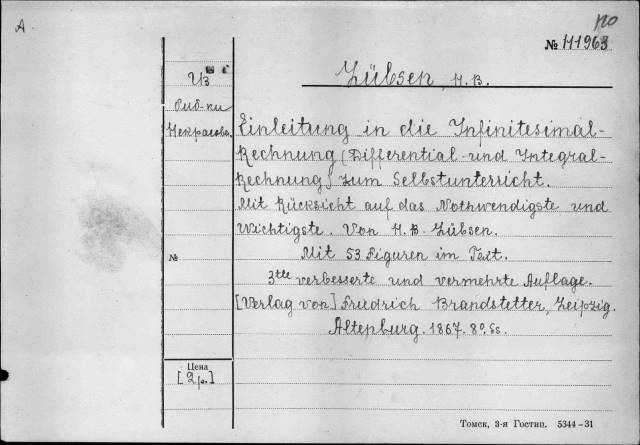 A
по
№ H1963
Из
биб-ки
Некрасова.
Lübsen, H.B.
Einleitung in die Infinitesimal-
Rechnung (Differential- und Integral-
Rechnung) zum Selbstunterricht.
Mit Rücksicht auf das Nothwendigste und
Wichtigste. Von H.B. Lübsen.
№
Mit 53 Figuren im Text.
3tte verbesserte und vermehrte Auflage.
[Verlag von] Friedrich Brandstetter, Leipzig.
Altenburg. 1867. 8º.
Цена
[2р.]
Томск, 3-я Гостип. 5344-31